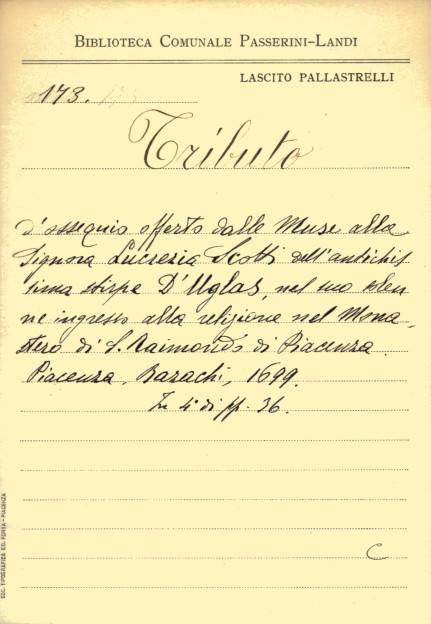 BIBLIOTECA COMUNALE PASSERINI-LANDI
LASCITO PALLASTRELLI
173.
Tributo
d'ossequio offerto dalle Muse alla
Signora Lucrezia Scotti dell'antichis
sima stirpe D'Uglas, nel suo solen
ne ingresso alla religione nel Mona
stero di S. Raimondo di Piacenza.
Piacenza, Bazachi, 1699.
In 4° di pp. 36.
C
SOC. TIPOGRAFICA ED. PORTA - PIACENZA